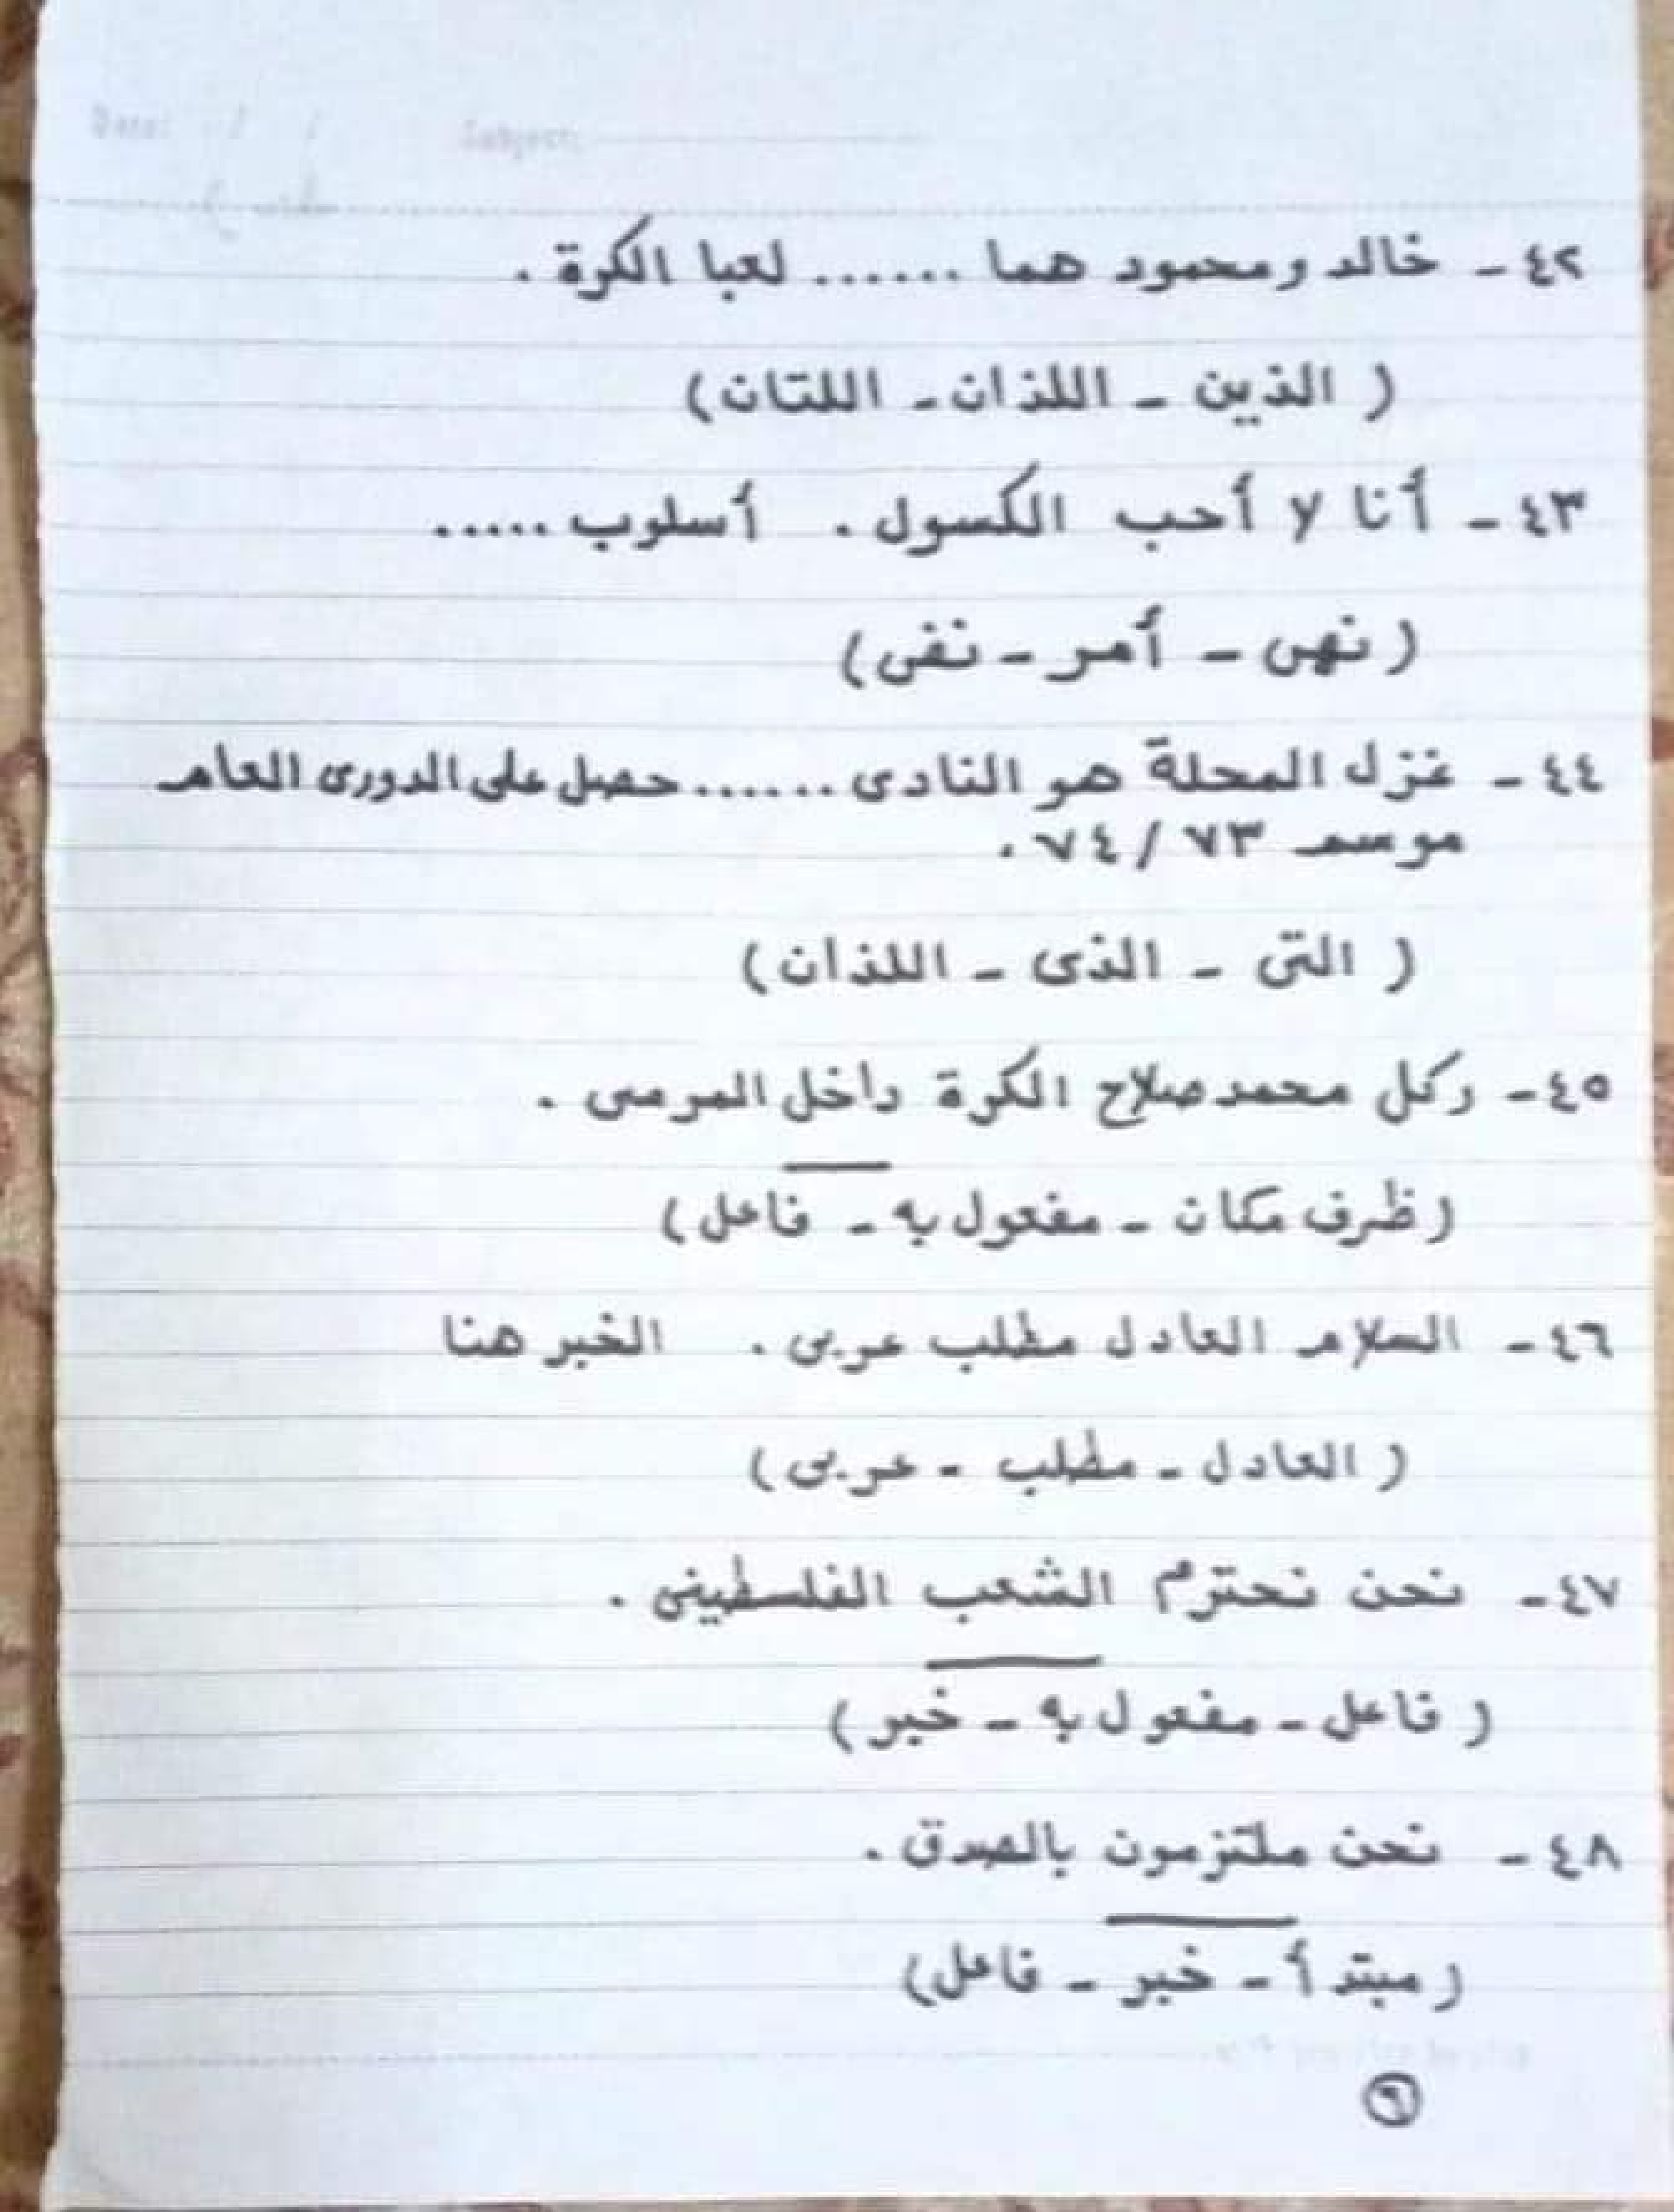 Date: / / Subject:
٤٢ - خالد ومحمود هما ...... لعبا الكرة .
( الذين - اللذان - اللتان )
٤٣ - أنا لا أحب الكسول . أسلوب .....
( نهى - أمر - نفى )
٤٤ - غزل المحلة هو النادى ...... حصل على الدورى العام
موسم ٧٣ / ٧٤ .
( التى - الذى - اللذان )
٤٥ - ركل محمد صلاح الكرة داخل المرمى .
( ظرف مكان - مفعول به - فاعل )
٤٦ - السلام العادل مطلب عربى . الخبر هنا
( العادل - مطلب - عربى )
٤٧ - نحن نحترم الشعب الفلسطينى .
( فاعل - مفعول به - خبر )
٤٨ - نحن ملتزمون بالصدق .
( مبتدأ - خبر - فاعل )
٩